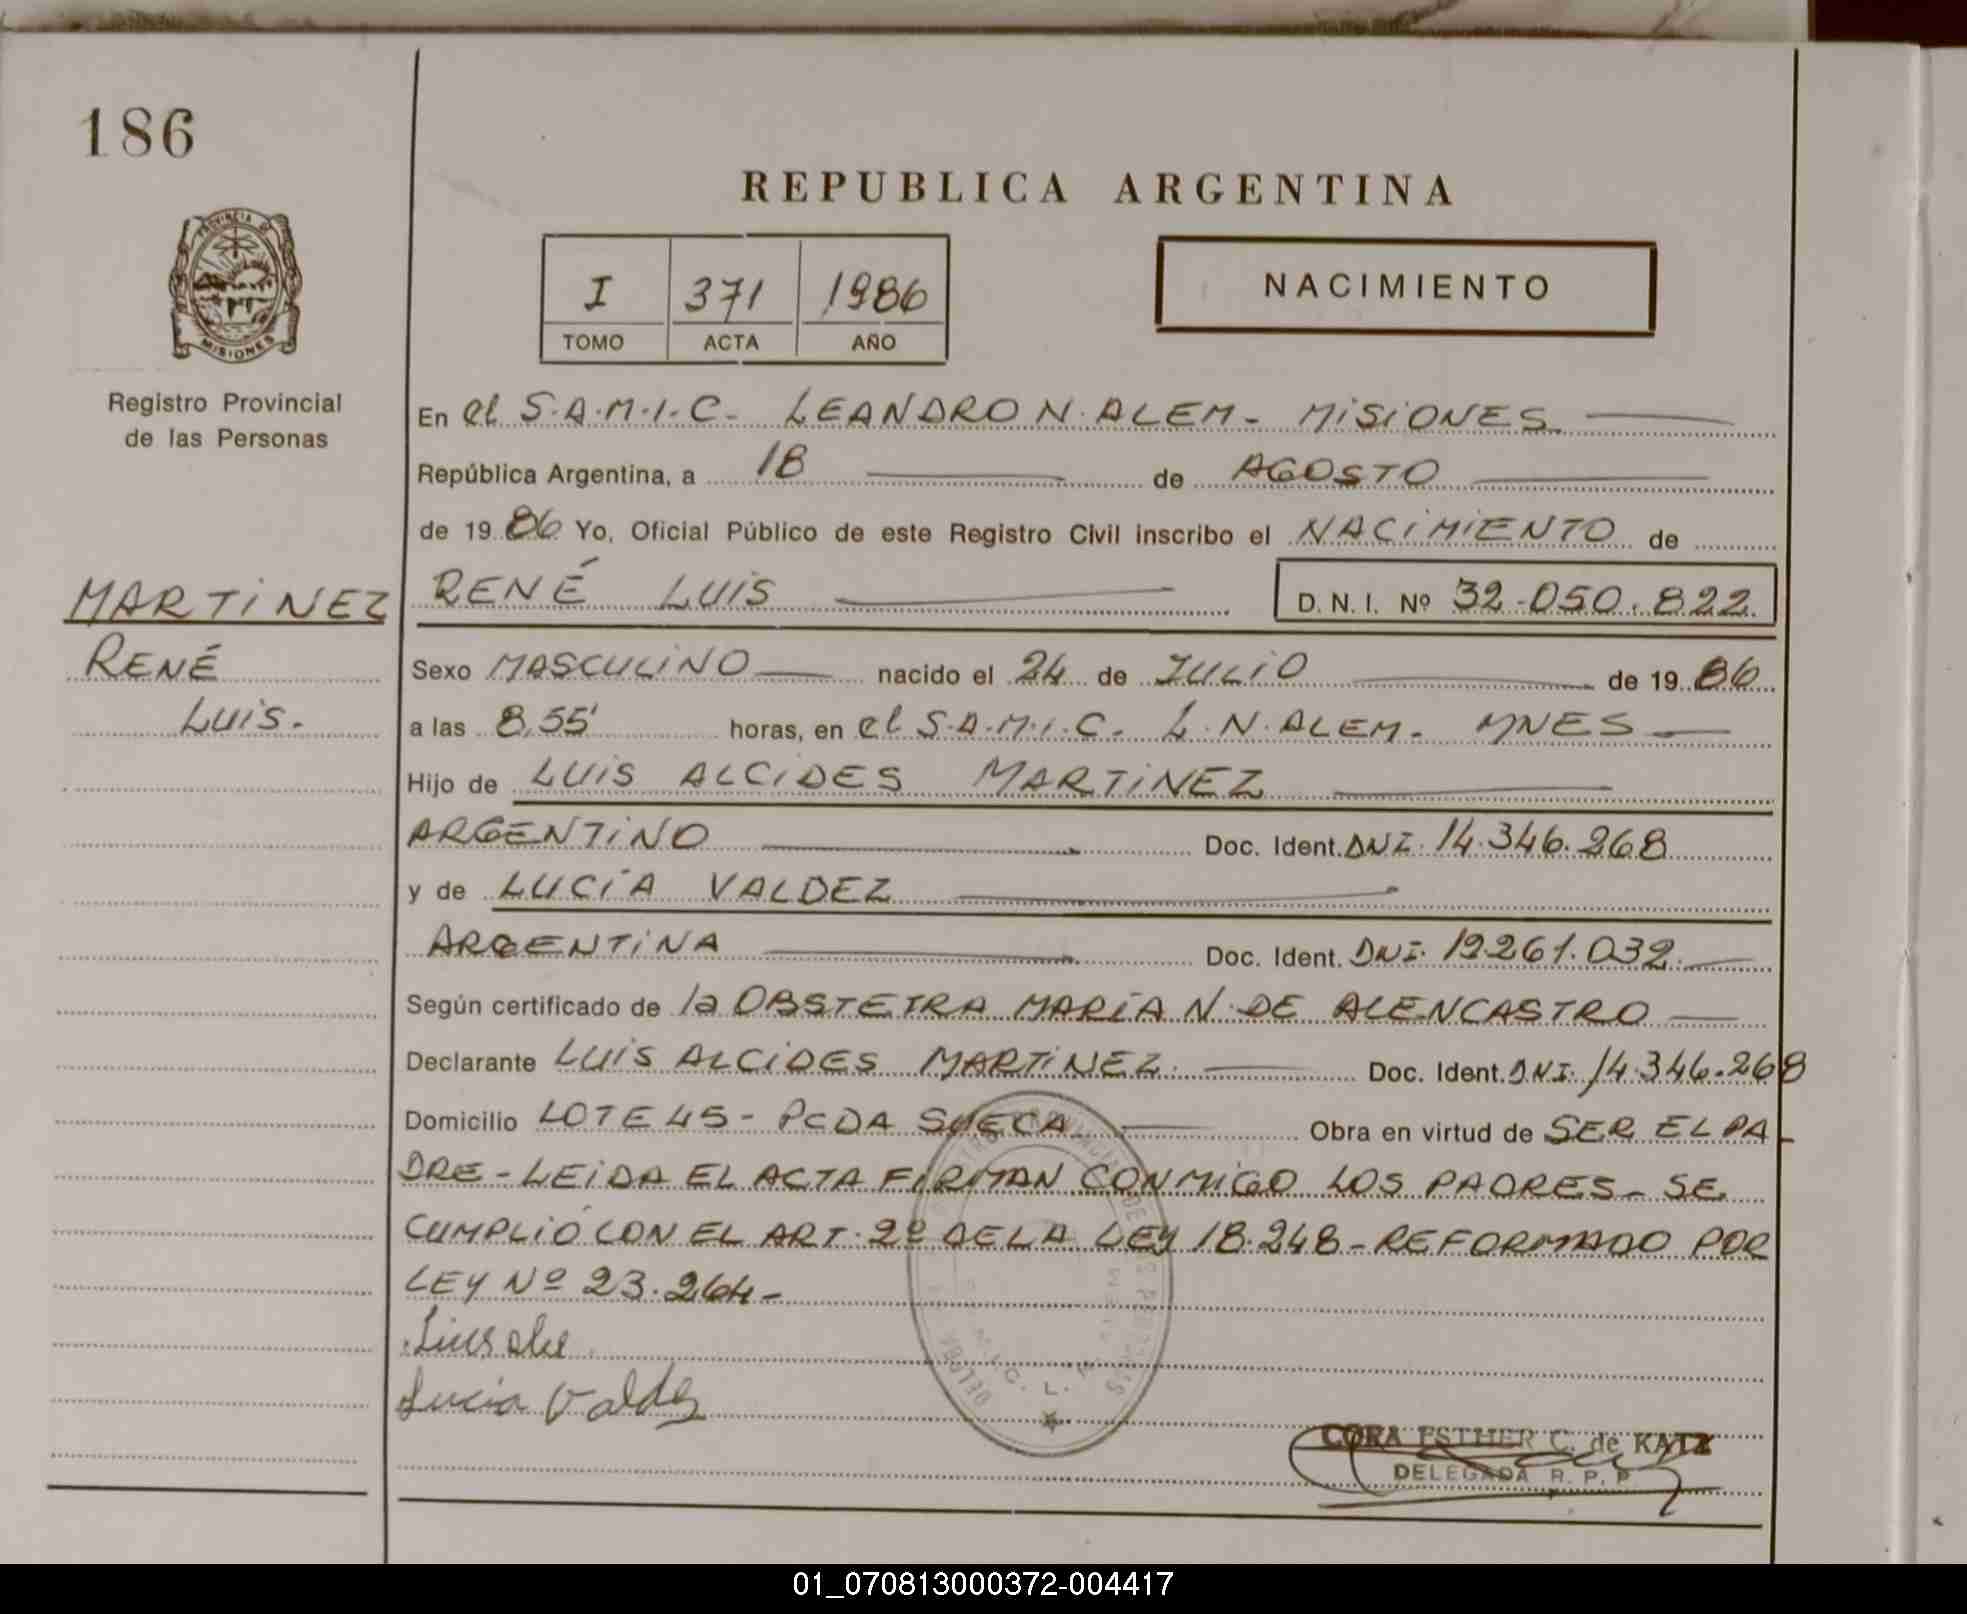 186
REPUBLICA ARGENTINA
PROVINCIA DE
MISIONES
I 371 1986
TOMO ACTA AÑO
NACIMIENTO
Registro Provincial
de las Personas
En el S.A.M.I.C. LEANDRO N. ALEM - MISIONES
República Argentina, a 18 de AGOSTO
de 1986 Yo, Oficial Público de este Registro Civil inscribo el NACIMIENTO de
MARTINEZ
RENÉ
LUIS.
RENÉ LUIS D. N. I. Nº 32.050.822
Sexo MASCULINO nacido el 24 de JULIO de 1986
a las 8,55' horas, en el S.A.M.I.C. L.N. ALEM - MNES
Hijo de LUIS ALCIDES MARTINEZ
ARGENTINO Doc. Ident. DNI. 14.346.268
y de LUCÍA VALDEZ
ARGENTINA Doc. Ident. DNI. 19.261.032
Según certificado de la OBSTETRA MARÍA N. DE ALENCASTRO
Declarante LUIS ALCIDES MARTINEZ Doc. Ident. DNI. 14.346.268
Domicilio LOTE 45 - PCDA SUECA Obra en virtud de SER EL PA-
DRE - LEIDA EL ACTA FIRMAN CONMIGO LOS PADRES - SE
CUMPLIÓ CON EL ART. 2º DE LA LEY 18.248 - REFORMADO POR
LEY Nº 23.264 -
Lucia Valdez
CORA ESTHER C. de KATZ
DELEGADA R. P. P.
01_070813000372-004417